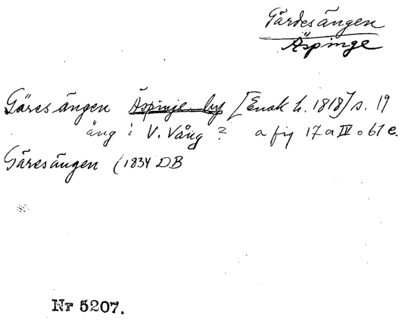 Gärdesängen
Äspinge
Gäresängen Äspinge by [Ensk h. 1818] s. 19
äng i V. Vång ? a fig 17 a IV o 61 e.
Gäresängen (1834 DB
Nr 5207.